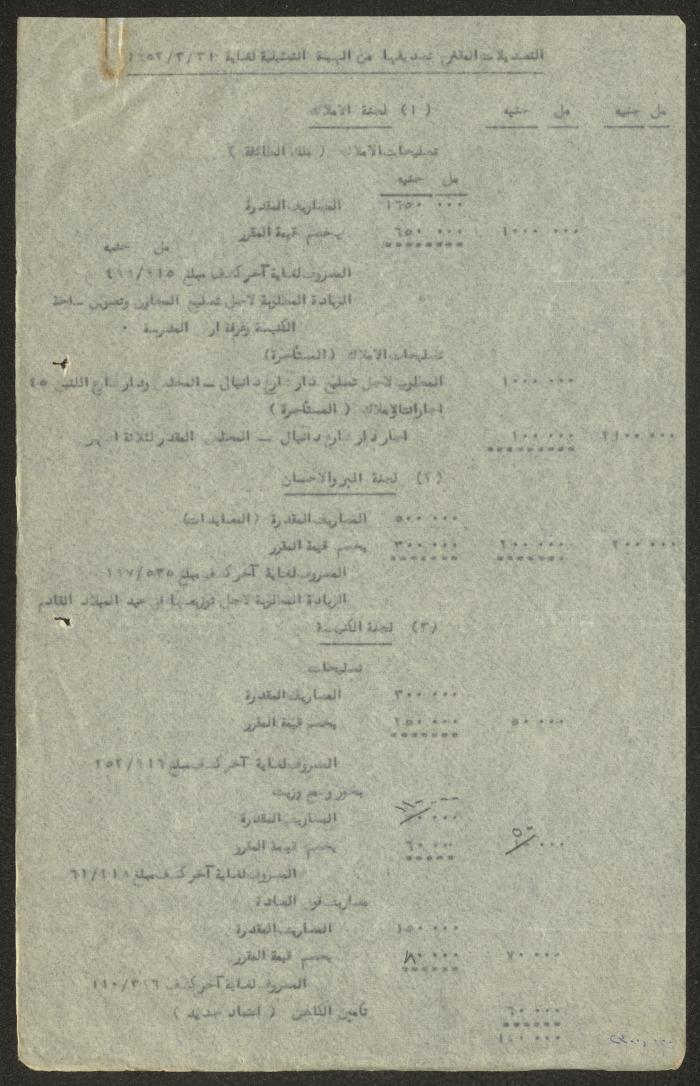 التعديلات المقترح تصديقها من الهيئة التمثيلية لغاية ٣١/٣/١٩٥٢
مل جنيه مل جنيه (١) لجنة الاملاك
تصليحات الاملاك ( ملك الطائفة )
مل جنيه
المصاريف المقدرة ٠٠٠ ١٦٥٠
يخصم قيمة المقرر ٠٠٠ ٦٥٠ ٠٠٠ ١٠٠٠
مل جنيه
المصروف لغاية آخر كشف مبلغ
الزيادة المطلوبة لاجل تصليح المخازن وتصوين ساحة
الكنيسة وغرفة المدرسة ٠
تصليحات الاملاك (المستأجرة)
المطلوب لاجل تصليح دار شارع دانيال ــ المجلس ودار شارع اللنبي ٤٥ ٠٠٠ ١٠٠٠
اجارات الاملاك ( المستأجرة )
اجار دار شارع دانيال ــ المجلس المقدر لثلاثة اشهر ٠٠٠ ١٠٠ ٠٠٠ ٢١٠٠
(٢) لجنة البر والاحسان
المصاريف المقدرة (المعايدات) ٠٠٠ ٥٠٠
يخصم قيمة المقرر ٠٠٠ ٣٠٠ ٠٠٠ ٢٠٠ ٠٠٠ ٢٠٠
المصروف لغاية آخر كشف مبلغ ١١٧/٥٣٥
الزيادة المطلوبة لاجل توزيعها في عيد الميلاد القادم
(٣) لجنة الكنيسة
تصليحات
المصاريف المقدرة ٠٠٠ ٣٠٠
يخصم قيمة المقرر ٠٠٠ ٢٥٠ ٠٠٠ ٥٠
المصروف لغاية آخر كشف مبلغ ٢٥٢/١١٦
بخور وشمع وزيت
المصاريف المقدرة ٠٠٠ ١١٠
يخصم قيمة المقرر ٠٠٠ ٦٠ ٠٠٠ ٥٠
المصروف لغاية آخر كشف مبلغ
مصاريف فوق العادة
المصاريف المقدرة ٠٠٠ ١٥٠
يخصم قيمة المقرر ٠٠٠ ٨٠ ٠٠٠ ٧٠
المصروف لغاية آخر كشف
تأمين الكاهن ( اعتماد جديد ) ٠٠٠ ٦٠